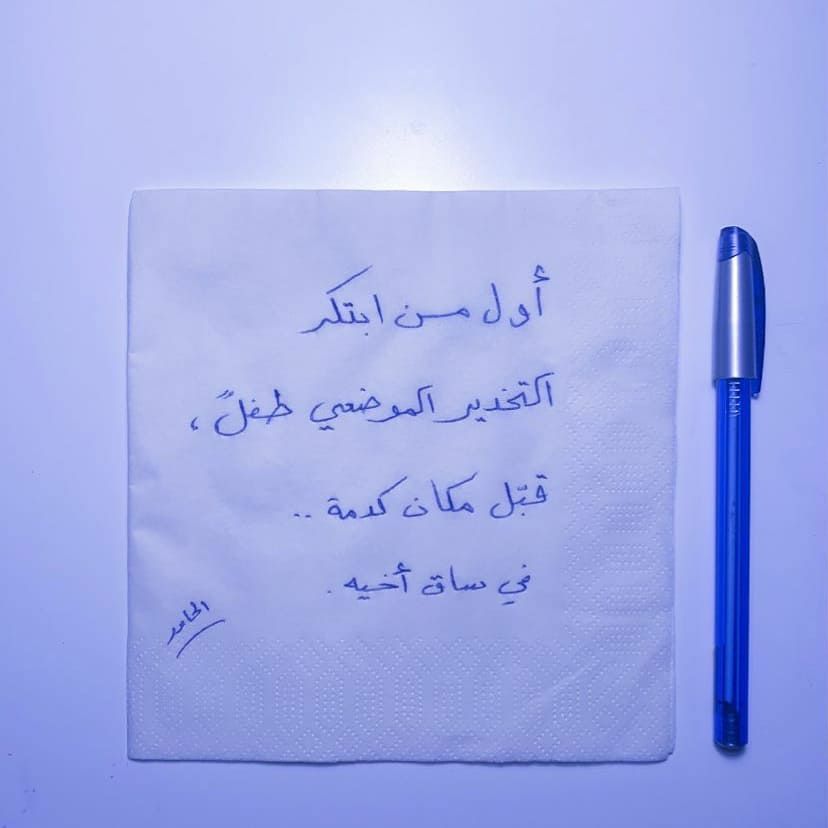 أول من ابتكر
التخدير الموضعي طفلً،
قبّل مكان كدمة ..
في ساق أخيه .
الحامد